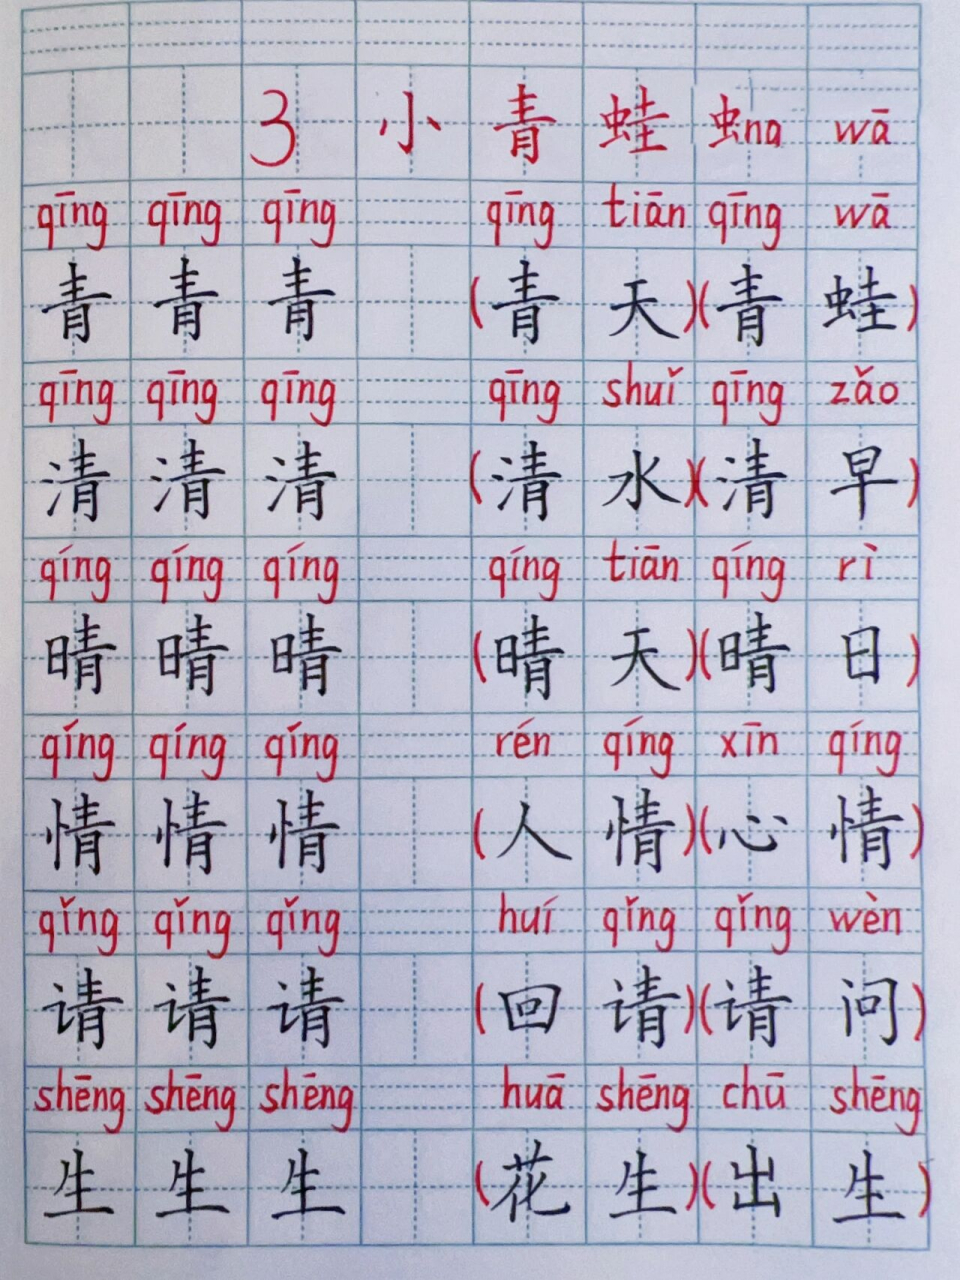 3 小 青 蛙 虫na wā
qīng qīng qīng qīng tiān qīng wā
青 青 青 (青 天)(青 蛙)
qīng qīng qīng qīng shuǐ qīng zǎo
清 清 清 (清 水)(清 早)
qíng qíng qíng qíng tiān qíng rì
晴 晴 晴 (晴 天)(晴 日)
qíng qíng qíng rén qíng xīn qíng
情 情 情 (人 情)(心 情)
qǐng qǐng qǐng huí qǐng qǐng wèn
请 请 请 (回 请)(请 问)
shēng shēng shēng huā shēng chū shēng
生 生 生 (花 生)(出 生)